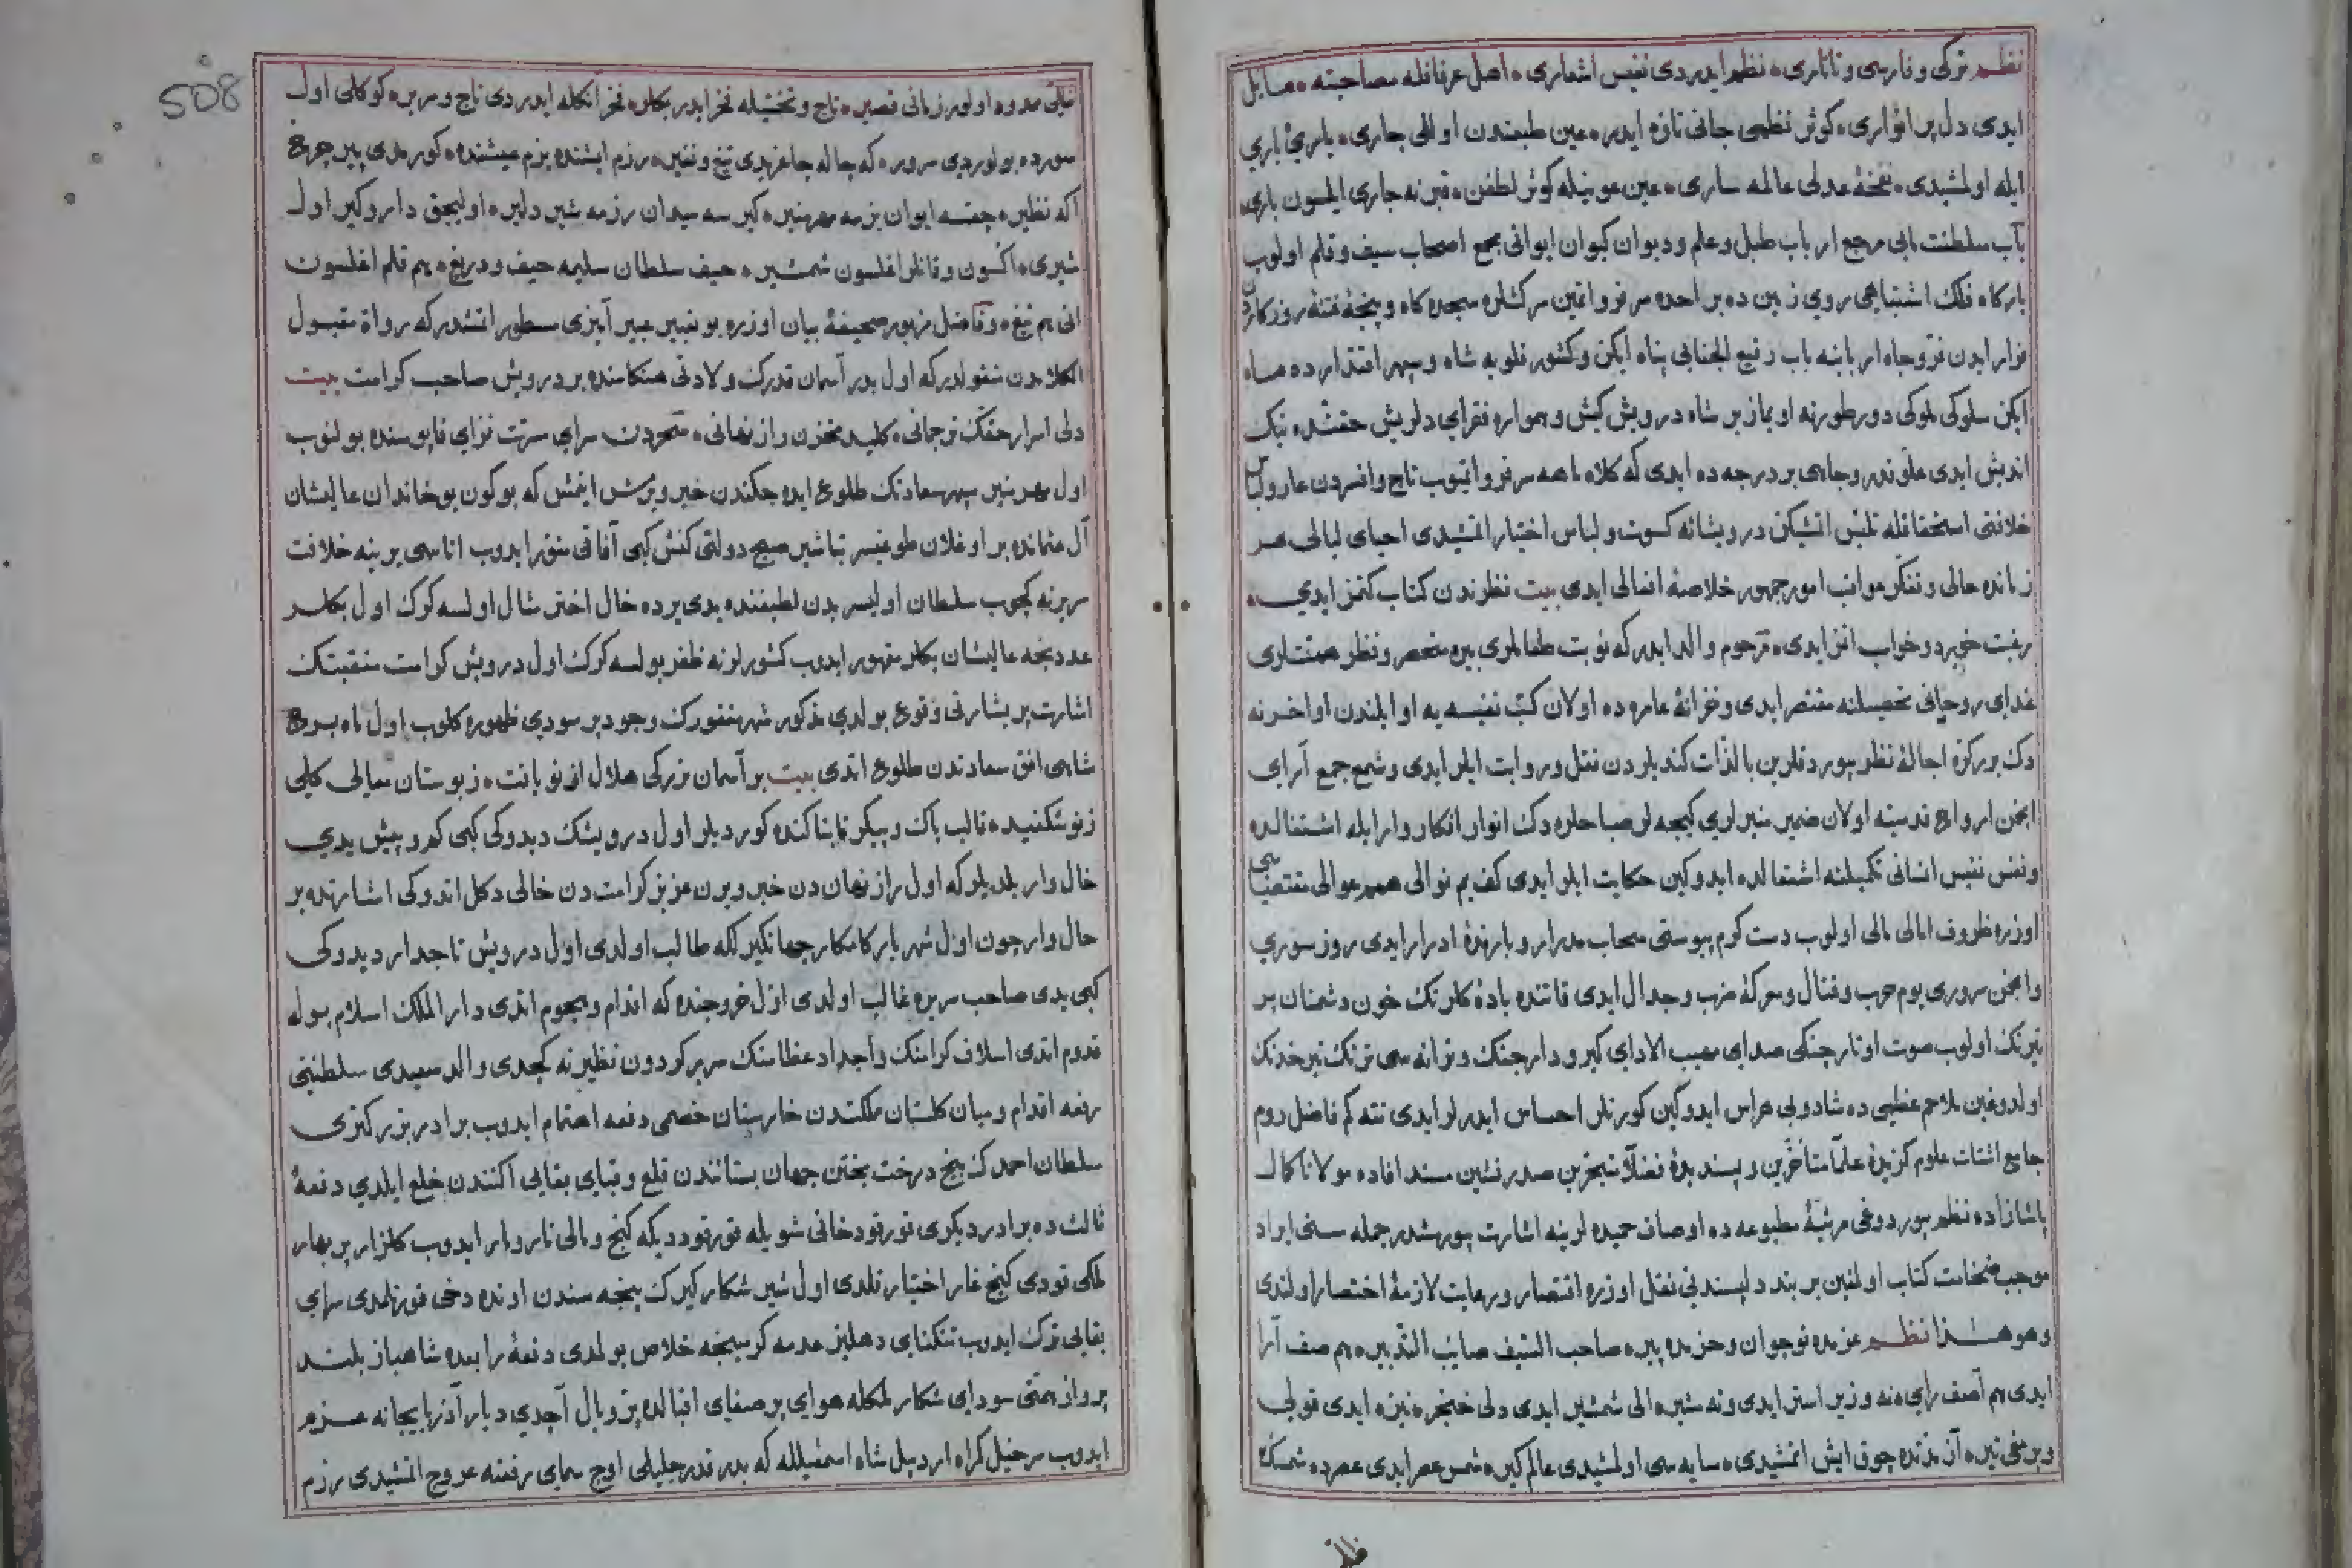 نظم تركی و فارسی و تاتاری نظم ایدردی نفیس اشعاری اصل عرفانله مصاحبته مایل
ایدی دل پر انواری كوثر نظمی جانی تازه ایدر عین طبعندن اوللی جاری یاری باری
ایله اولمشیدی نفخهٔ عدلی عالمه ساری عین عونیله كوثر لطفن قبرنه جاری ایلسون باری
باب سلطنت مابی مرجع ارباب طبل و علم و دیوان كیوان ایوانی مجمع اصحاب سیف و قلم اولوب
باركاه فلك اشتباهی روی زمین ده بر احده سر فرو اتمین سركشلره سجده كاه و پنجهٔ فتنهٔ روزكاردن
فرار ایدن عز و جاه اربابنه باب رفیع الجنابی پناه ایكن و كشور قلوبه شاه و سپهر اقتدارده ماه
ایكن سلوكی ملوكی دور طورنه اویماز بر شاه درویش كیش و همواره فقرای دلریش حقنده نیك
اندیش ایدی علو قدر و جاهی بر درجه ده ایدی كه كلاه ماهه سر فرو اتمیوب تاج و افسردن عار و لباس
خلافتی استحقاقله تلبس اتمشیكن درویشانه كسوت و لباس اختیار اتمشیدی احیای لیالی هر
زمانده حالی و تفكر عواقب امور جمهور خلاصهٔ افعالی ایدی بیت نظرندن كتاب كتمز ایدی
رغبت خورد و خواب اتمز ایدی مرحوم والد ایدر كه نوبت طعاملری بیره منحصر و نظر همتلری
غدای روحانی تحصیلنه مقتصر ایدی و خزانهٔ عامره ده اولان كتب نفیسه یه اوایلندن اواخرنه
دك برر كره اجالهٔ نظر بیوردقلرین بالذات كندیلردن نقل و روایت ایلر ایدی و شمع جمع آرای
انجمن ارواح قدسیه اولان ضمیر منیرلری كیجه لر صباحلره دك انوار افكار وار ایله اشتعالده
و نفس نفیس انسانی تكمیلنه اشتغالده ایدوكین حكایت ایلر ایدی كف یم نوالی همم عوالی مقتضاسی
اوزره ظروف امالی مالی اولوب دست كرم پیوستی سحاب مدرار و بارندهٔ ادرار ایدی روز سوری
و انجمن سروری یوم حرب و قتال و معركهٔ ضرب و جدال ایدی قاتنده بادهٔ كلرنك خون دشمنان پر
نیرنك اولوب صوت اوتار چنكی صدای مهیب الادای كیر و دار جنك و ترانه سی ترنك تیر خدنك
اولدوغین ملاحم عظیمی ده شاد و بی هراس ایدوكین كورنلر احساس ایدرلر ایدی نته كم فاضل روم
جامع اشتات علوم كزیدهٔ علما متأخرین و پسندیدهٔ فضلا متبحرین صدر نشین مسند افاده مولانا كمال
پاشازاده نظم بیوردوغی مرثیهٔ مطبوعه ده اوصاف حمیده لرینه اشارت بیورمشدر جمله سنی ایراد
موجب ضخامت كتاب اولمغین بر بند دلپسندنی نقل اوزره اقتصار و رعایت لازمهٔ اختصار اولندی
و هو هذا نظم عزمده نوجوان و حزمده پیر صاحب السیف صایب التدبیر هم صف آرا
ایدی هم آصف رای نه وزیر استر ایدی و نه مشیر الی شمشیر ایدی دلی خنجر نیزه ایدی قولی
و پرمغی تیر آز مدتده چوق ایش اتمشیدی سایه سی اولمشیدی عالم كیر شمس عصر ایدی عصرده شمسك
ظلی
508
ظلی ممدود اولور زمانی قصیر تاج و تختیله فخر ایدر بكلر فخر انكله ایدردی تاج و سریر كوكلی اول
سورده بولوردی سرور كه چاله چاغریدی تیغ و نفیر رزم ایشنده بزم عیشنده كورمدی پیر چرخ
اكه نظیر چقسه ایوان بزمه مهر منیر كیرسه میدان رزمه شیر دلیر اولیجق دار و كیر اول
شیری آكسون و قانلر اغلسون شمشیر حیف سلطان سلیمه حیف و دریغ هم قلم اغلسون
انی هم تیغ و فاضل مزبور صحیفهٔ بیان اوزره بو تعبیر عبیر آمیزی مسطور اتمشدر كه رواة مقبول
الكلامدن منقولدر كه اول بدر آسمان قدرك ولادتی هنكامنده بر درویش صاحب كرامت بیت
دلی اسرار حقك ترجمانی كلید مخزن راز نهانی سحردن سرای مسرت فزای قاپوسنده بولنوب
اول مهر منیر سپهر سعادتك طلوع ایده جكندن خبر ویرمش ایمش كه بوكون بو خاندان عالیشان
آل عثمانده بر اوغلان طوغیسر تباشیر صبح دولتی كنش كبی آفاقی منور ایدوب اتاسی یرینه خلافت
سریرنه كچوب سلطان اولیسر بدن لطیفنده یدی یرده خال اختر مثال اولسه كرك اول بكلر
عددنجه عالیشان بكلر مقهور ایدوب كشورلرنه ظفر بولسه كرك اول درویش كرامت منقبتك
اشارت پر بشارتی وقوع بولدی مذكور شهر مغفورك وجود پر سودی ظهوره كلوب اول ماه برج
شاهی افق سعادتدن طلوع اتدی بیت بر آسمان بزركی هلال از نو یافت ز بوستان معالی كلی
ز نو شكفید قالب پاك و پیكر تابناكنده كوردیلر اول درویشك دیدوكی كبی كم و بیش یدی
خال وار بلدیلر كه اول راز نهان دن خبر ویرن عزیز كرامت دن خالی دكل اتدوكی اشارتده بر
حال وار چون اول شهریار كامكار جهانكیرلكه طالب اولدی اول درویش تاجدار دیدوكی
كبی یدی صاحب سریره غالب اولدی اول خروجنده كه اقدام و هجوم اتدی دار الملك اسلامبوله
قدوم اتدی اسلاف كرامنك و اجداد عظامنك سریر كردون نظیرنه كچدی والد سعیدی سلطنتی
رفعه اقدام و میان كلستان ملكتدن خارستان خصمی دفعه اهتمام ایدوب برادر بزركتری
سلطان احمدك بیخ درخت بختن جهان بستانندن قلع و قبای بقایی اكنندن خلع ایلدی دفعهٔ
ثالث ده برادر دیكری قورقود خانی شویله قورقوددیكه كنج و مالی تار و مار ایدوب كلزار پر بهار
ملكی قودی كنج غار اختیار قلدی اول شیر شكار كیرك پنجه سندن اونده دخی قورتلمدی سرای
بقایی ترك ایدوب تنكنای دهلیز عدمه كرمینجه خلاص بولمدی دفعهٔ رابعده شاهباز بلند
پرواز همتی سودای شكار ملكله هوای پر صفای اقبالده پر و بال آچدی دیار آذربایجانه عزم
ایدوب سرخیل كمراه اردبیل شاه اسمعیلله كه بدر قدر جلیلی اوج سمای رفعته عروج اتمشیدی رزم